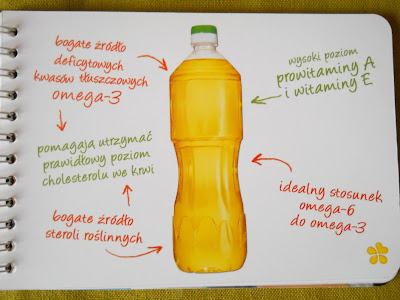 bogate źródło
deficytowych
kwasów tłuszczowych
omega-3
pomagają utrzymać
prawidłowy poziom
cholesterolu we krwi
bogate źródło
steroli roślinnych
wysoki poziom
prowitaminy A
i witaminy E
idealny stosunek
omega-6
do omega-3